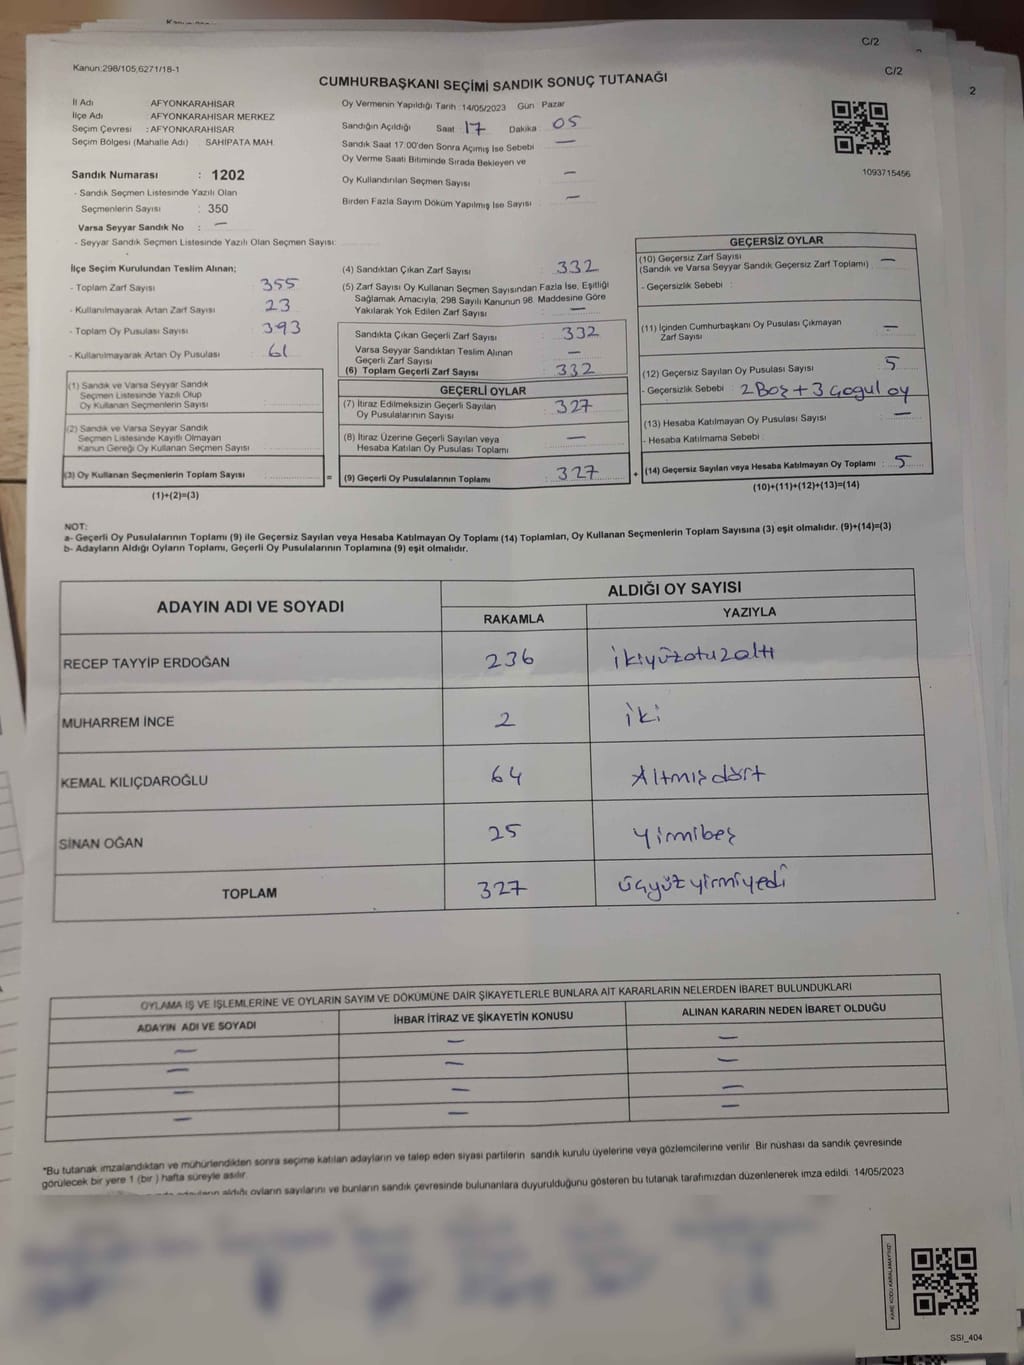 C/2
C/2
2
Kanun:298/105,6271/18-1
CUMHURBAŞKANI SEÇİMİ SANDIK SONUÇ TUTANAĞI
İl Adı AFYONKARAHİSAR
İlçe Adı AFYONKARAHİSAR MERKEZ
Seçim Çevresi : AFYONKARAHİSAR
Seçim Bölgesi (Mahalle Adı) SAHİPATA MAH.
Sandık Numarası : 1202
- Sandık Seçmen Listesinde Yazılı Olan
Seçmenlerin Sayısı : 350
Varsa Seyyar Sandık No : —
- Seyyar Sandık Seçmen Listesinde Yazılı Olan Seçmen Sayısı:
Oy Vermenin Yapıldığı Tarih : 14/05/2023 Gün Pazar
Sandığın Açıldığı Saat 17 Dakika 05
Sandık Saat 17:00'den Sonra Açımış İse Sebebi —
Oy Verme Saati Bitiminde Sırada Bekleyen ve
Oy Kullandırılan Seçmen Sayısı —
Birden Fazla Sayım Döküm Yapılmış İse Sayısı —
1093715456
İlçe Seçim Kurulundan Teslim Alınan;
- Toplam Zarf Sayısı 355
- Kullanılmayarak Artan Zarf Sayısı 23
- Toplam Oy Pusulası Sayısı 393
- Kullanılmayarak Artan Oy Pusulası 61
(1) Sandık ve Varsa Seyyar Sandık
Seçmen Listesinde Yazılı Olup
Oy Kullanan Seçmenlerin Sayısı
(2) Sandık ve Varsa Seyyar Sandık
Seçmen Listesinde Kayıtlı Olmayan
Kanun Gereği Oy Kullanan Seçmen Sayısı
(3) Oy Kullanan Seçmenlerin Toplam Sayısı
(1)+(2)=(3)
(4) Sandıktan Çıkan Zarf Sayısı 332
(5) Zarf Sayısı Oy Kullanan Seçmen Sayısından Fazla İse, Eşitliği
Sağlamak Amacıyla, 298 Sayılı Kanunun 98. Maddesine Göre
Yakılarak Yok Edilen Zarf Sayısı —
Sandıkta Çıkan Geçerli Zarf Sayısı 332
Varsa Seyyar Sandıktan Teslim Alınan
Geçerli Zarf Sayısı —
(6) Toplam Geçerli Zarf Sayısı 332
GEÇERLİ OYLAR
(7) İtiraz Edilmeksizin Geçerli Sayılan
Oy Pusulalarının Sayısı 327
(8) İtiraz Üzerine Geçerli Sayılan veya
Hesaba Katılan Oy Pusulası Toplamı —
= (9) Geçerli Oy Pusulalarının Toplamı 327 +
GEÇERSİZ OYLAR
(10) Geçersiz Zarf Sayısı
(Sandık ve Varsa Seyyar Sandık Geçersiz Zarf Toplamı) —
- Geçersizlik Sebebi :
(11) İçinden Cumhurbaşkanı Oy Pusulası Çıkmayan
Zarf Sayısı —
(12) Geçersiz Sayılan Oy Pusulası Sayısı 5
- Geçersizlik Sebebi 2 Boş + 3 Çoğul oy
(13) Hesaba Katılmayan Oy Pusulası Sayısı —
- Hesaba Katılmama Sebebi
(14) Geçersiz Sayılan veya Hesaba Katılmayan Oy Toplamı : 5
(10)+(11)+(12)+(13)=(14)
NOT:
a- Geçerli Oy Pusulalarının Toplamı (9) ile Geçersiz Sayılan veya Hesaba Katılmayan Oy Toplamı (14) Toplamları, Oy Kullanan Seçmenlerin Toplam Sayısına (3) eşit olmalıdır. (9)+(14)=(3)
b- Adayların Aldığı Oyların Toplamı, Geçerli Oy Pusulalarının Toplamına (9) eşit olmalıdır.
ADAYIN ADI VE SOYADI
ALDIĞI OY SAYISI
RAKAMLA YAZIYLA
RECEP TAYYİP ERDOĞAN 236 ikiyüzotuzaltı
MUHARREM İNCE 2 iki
KEMAL KILIÇDAROĞLU 64 Altmışdört
SİNAN OĞAN 25 Yirmibeş
TOPLAM 327 üçyüzyirmiyedi
OYLAMA İŞ VE İŞLEMLERİNE VE OYLARIN SAYIM VE DÖKÜMÜNE DAİR ŞİKAYETLERLE BUNLARA AİT KARARLARIN NELERDEN İBARET BULUNDUKLARI
ADAYIN ADI VE SOYADI İHBAR İTİRAZ VE ŞİKAYETİN KONUSU ALINAN KARARIN NEDEN İBARET OLDUĞU
— — —
— — —
— — —
— — —
*Bu tutanak imzalandıktan ve mühürlendikten sonra seçime katılan adayların ve talep eden siyasi partilerin sandık kurulu üyelerine veya gözlemcilerine verilir. Bir nüshası da sandık çevresinde
görülecek bir yere 1 (bir ) hafta süreyle asılır.
aldığı oyların sayılarını ve bunların sandık çevresinde bulunanlara duyurulduğunu gösteren bu tutanak tarafımızdan düzenlenerek imza edildi. 14/05/2023
KARE KODU KARALAMAYINIZ!
SSI_404